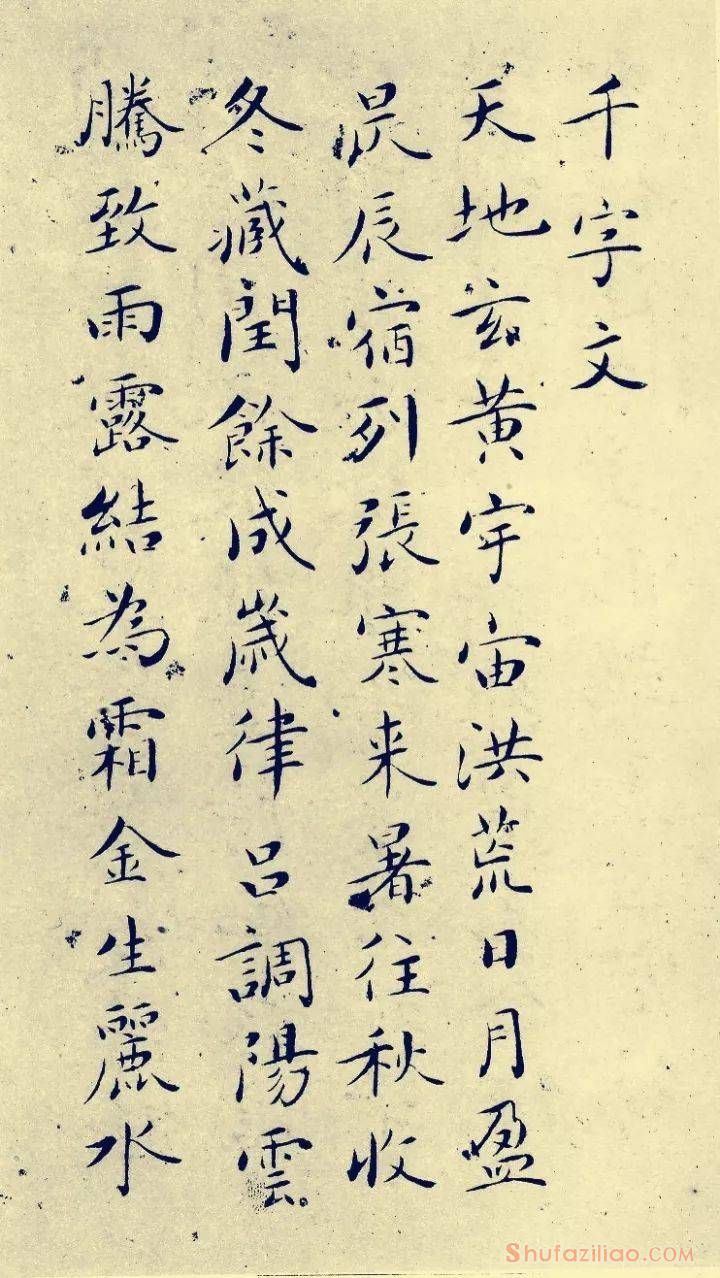 千字文
天地玄黄宇宙洪荒日月盈
昃辰宿列張寒来暑往秋收
冬藏閏餘成歲律吕調陽雲
騰致雨露結為霜金生麗水
Shufaziliao.COM